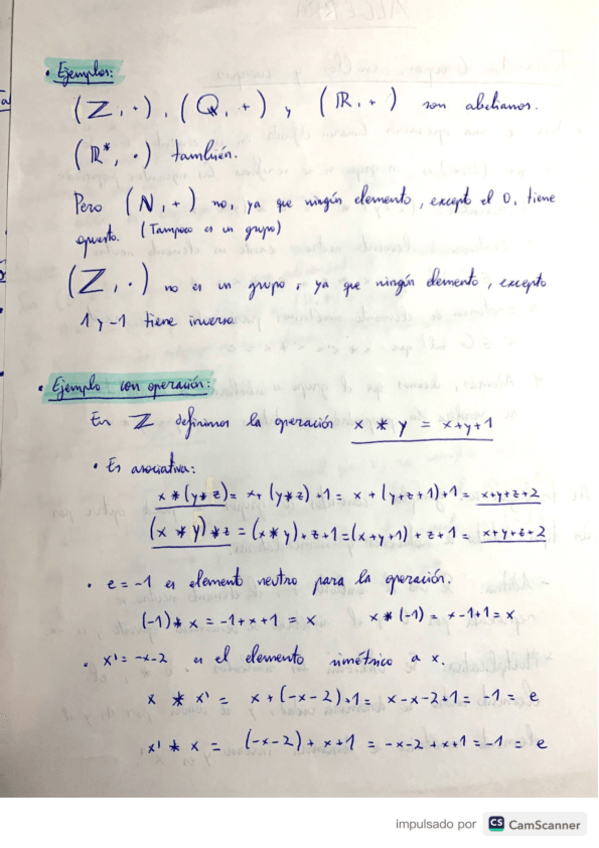 • Ejemplos:
(Z, +), (Q, +) y (R, +) son abelianos.
(R*, ·) también.
Pero (N, +) no, ya que ningún elemento, excepto el 0, tiene
opuesto. (Tampoco es un grupo)
(Z, ·) no es un grupo, ya que ningún elemento, excepto
1 y -1 tiene inverso
• Ejemplo con operación:
En Z definimos la operación x * y = x+y+1
• Es asociativa:
x * (y * z) = x + (y * z) + 1 = x + (y+z+1)+1 = x+y+z+2
(x * y) * z = (x * y) + z + 1 = (x+y+1) + z + 1 = x+y+z+2
• e = -1 es elemento neutro para la operación.
(-1) * x = -1 + x + 1 = x x * (-1) = x - 1 + 1 = x
• x' = -x-2 es el elemento simétrico a x.
x * x' = x + (-x-2) + 1 = x - x - 2 + 1 = -1 = e
x' * x = (-x-2) + x + 1 = -x - 2 + x + 1 = -1 = e
impulsado por CS CamScanner